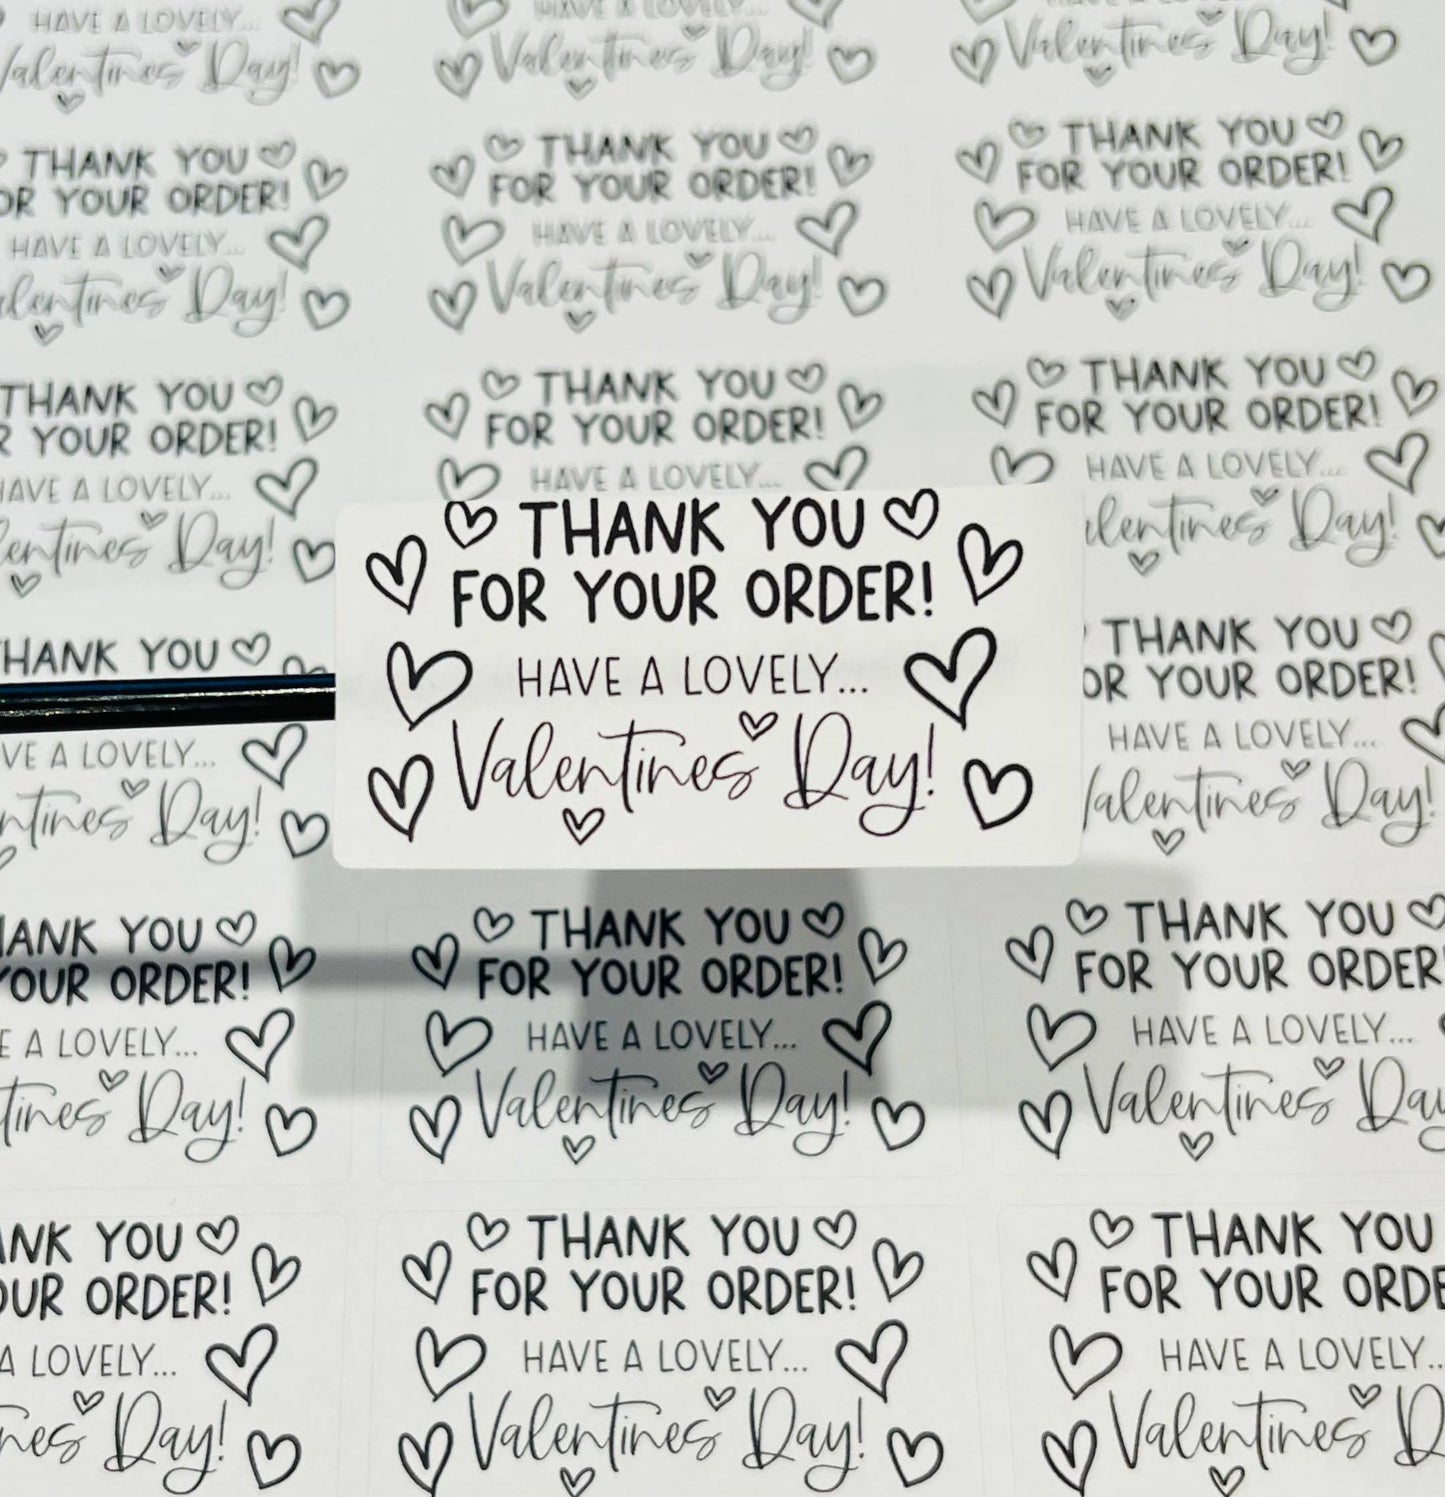 HAVE A LOVELY...
Valentines Day!
HAVE A LOVELY...
Valentines Day!
Valentines Day!
THANK YOU
YOUR ORDER!
HAVE A LOVELY...
Day!
THANK YOU
FOR YOUR ORDER!
HAVE A LOVELY...
Valentines Day!
THANK YOU
FOR YOUR ORDER!
HAVE A LOVELY...
Valentines Day!
THANK YOU
YOUR ORDER!
HAVE A LOVELY...
Day!
THANK YOU
FOR YOUR ORDER!
HAVE A LOVELY...
THANK YOU
FOR YOUR ORDER!
HAVE A LOVELY...
Day!
THANK YOU
FOR YOUR ORDER!
HAVE A LOVELY...
Valentines Day!
YOU
A LOVELY...
Day!
THANK YOU
YOUR ORDER!
HAVE A LOVELY...
Valentines Day!
YOU
YOUR ORDER!
A LOVELY...
Day!
THANK YOU
FOR YOUR ORDER!
HAVE A LOVELY...
Valentines Day!
THANK YOU
FOR YOUR ORDER
HAVE A LOVELY...
Valentines
YOU
ORDER!
A LOVELY...
Day!
THANK YOU
FOR YOUR ORDER!
HAVE A LOVELY...
Valentines Day!
THANK YOU
FOR YOUR
HAVE A LOVELY...
Valentines